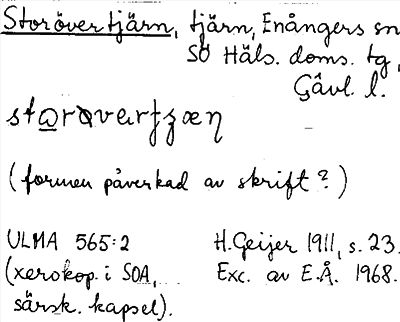 Storövertjärn, tjärn, Enångers sn
SÖ Häls. doms. tg,
Gävl. l.
(formen påverkad av skrift?)
ULMA 565:2
H. Geijer 1911, s. 23.
(xerokop. i SOA,
Exc. av E.Å. 1968.
särsk. kapsel).